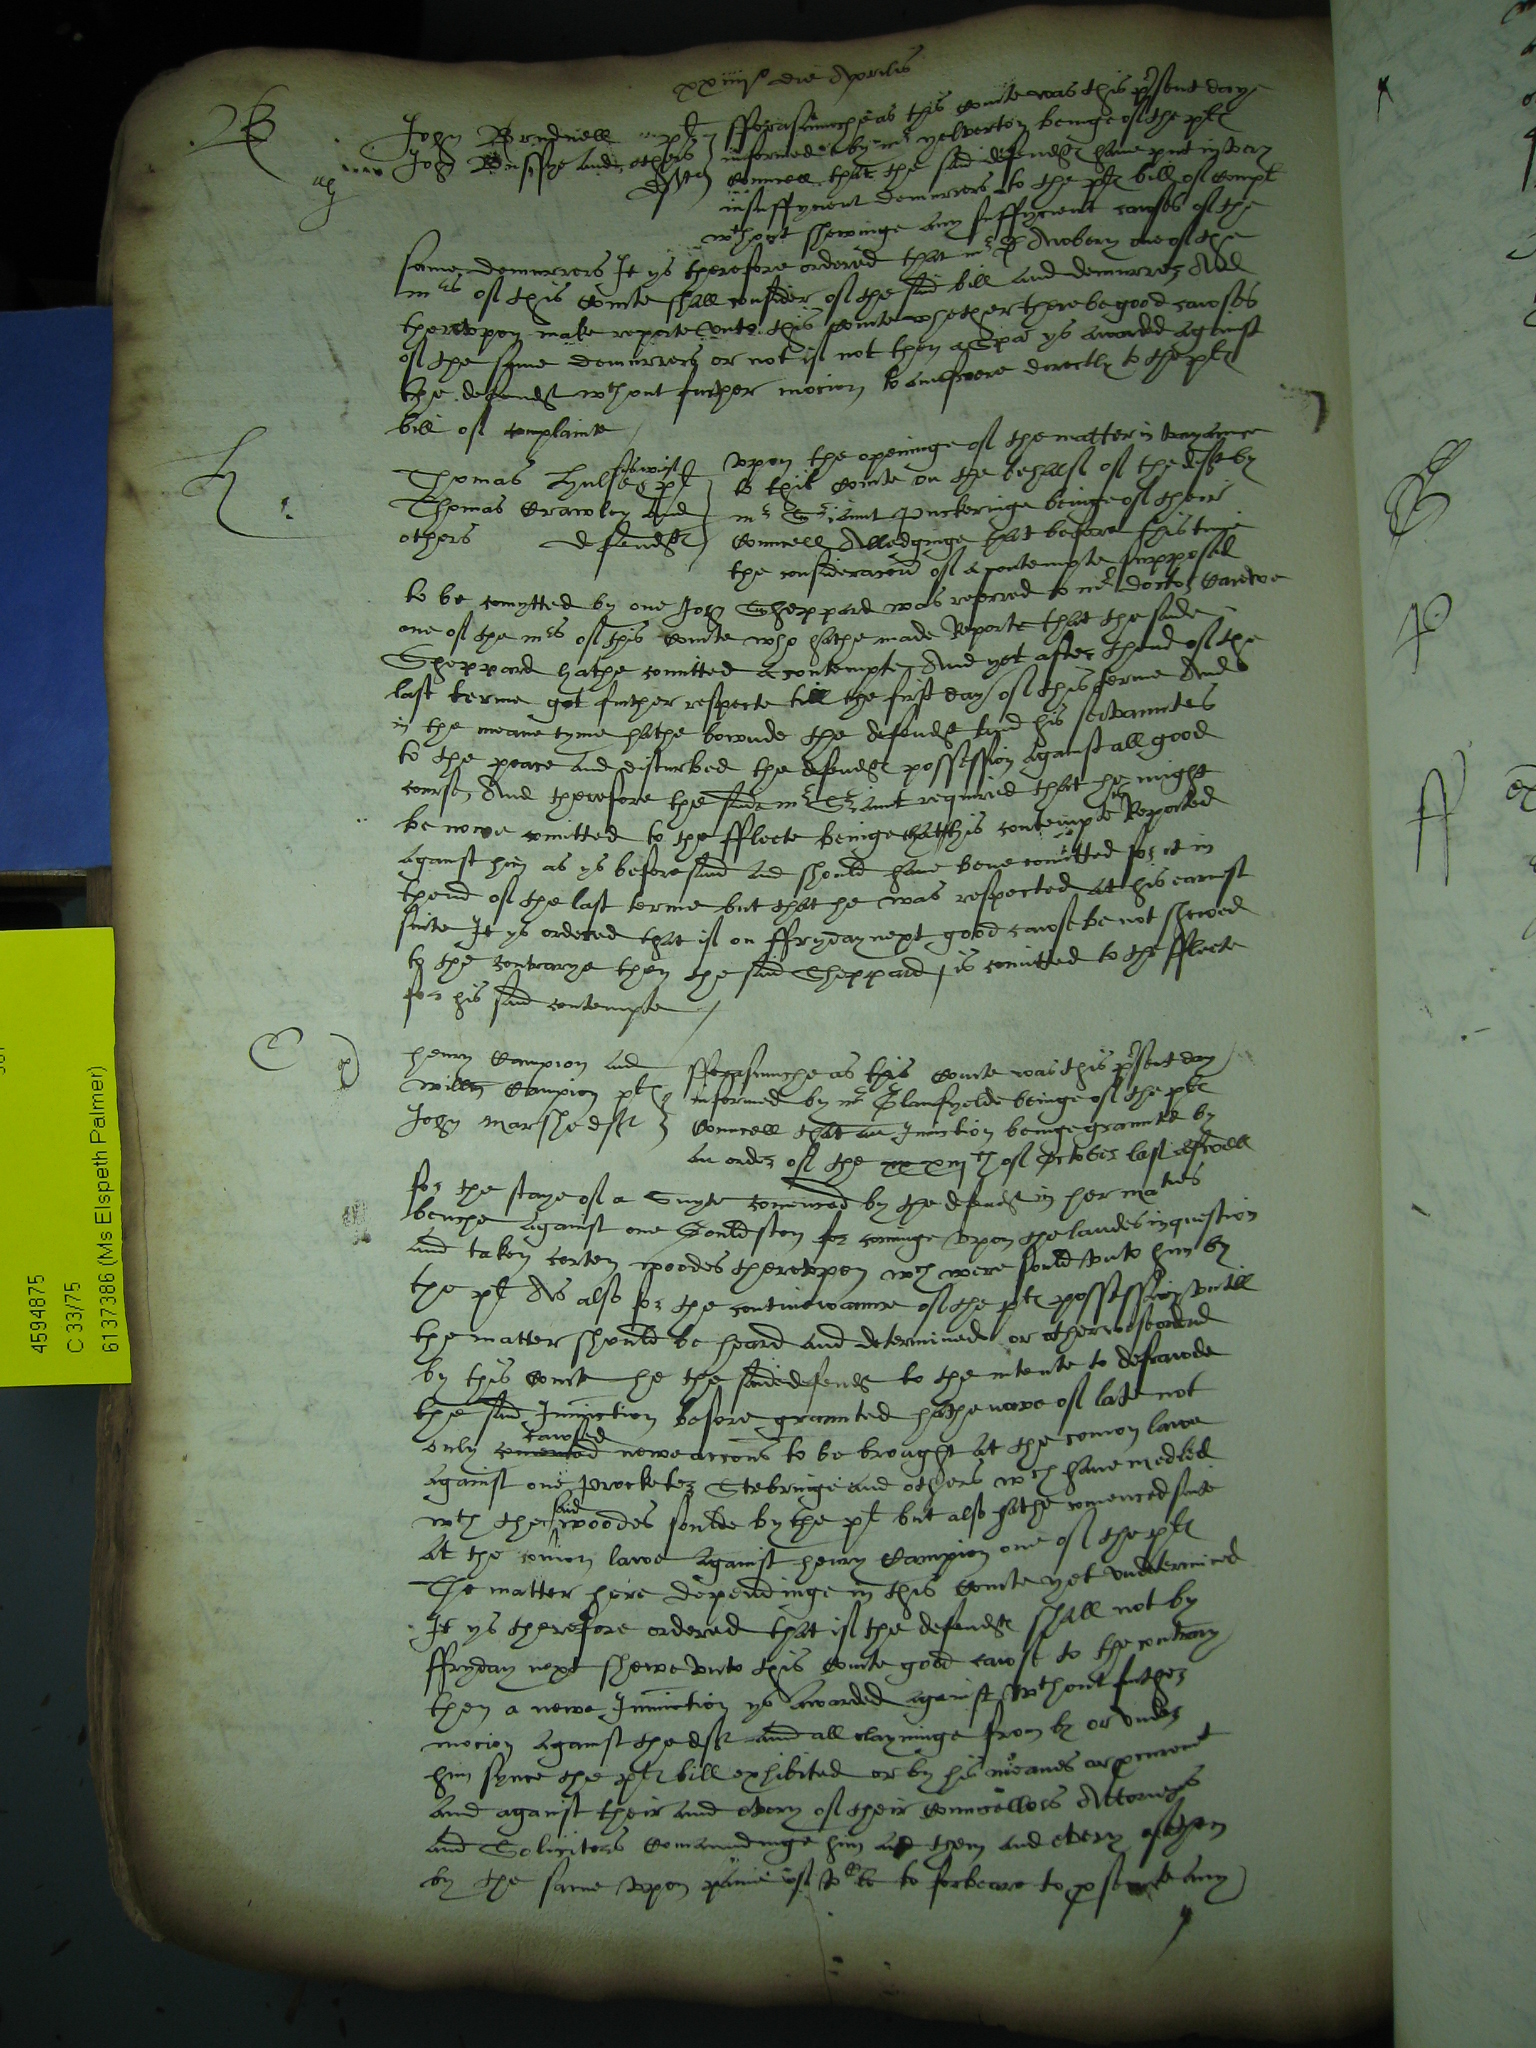 xxiiiio die Aprilis
B
John Brudnell plt
John Bussye and others
defts
fforasmuche as this Courte was this present daye
informed by mr yelverton beinge of the pltes
Councell that the said defendtes have put in
insuffycient demurrers to the pltes bill of Complt
wthout shewinge any suffycient causes of the
same demurrers It ys therefore ordered that mr D Awbery one of the
mrs of this Courte shall consider of the said bill and demurrer And
therevpon make reporte vnto this Courte whether there be good causes
of the same demurrers or not if not then a Spa ys awarded against
the defendtes wthout further mocion to aunswere directly to the pltes
bill of complainte
H
Thomas Hulse plt
Thomas Crawley and
others defendtes
vpon the openinge of the matter in
to this Courte on the behalf of the deftes by
mr Seriaunt Puckeringe beinge of their
Councell Alledginge that before this time
the consideracon of a contempte supposed
to be comytted by one John Sheppard was referred to mr doctor Carewe
one of the mrs of this Courte who hathe made Reporte that the saide
Sheppard hathe comitted a contempte And yet after thend of the
last terme got further respecte till the first day of this terme And
in the meane tyme hathe bownde the defendt and his servauntes
to the peace and disturbed the defendtes possession against all good
course, And therefore the saide mr Seriaunt required that he might
be nowe comitted to the fflete beinge that his contempte is Reported
against him as ys beforesaid and should have bene comitted for it in
thend of the last terme but that he was respected at his earnest
suite It ys ordered that if on ffryday next good cause be not shewed
to the contrarye then the said Sheppard is comitted to the fflete
for his said contempte
C
Henry Campion and
willm Campion pltes
John Marshe deft
fforasmuche as this Courte was this present day
informed by mr Glanfyelde beinge of the pltes
Councell that an Iniunction beinge graunted by
an order of the xxxth of October last aswell
for the staye of a Suyte comenced by the defendt in her maties
benche against one Gouldston for cominge vpon the landes in question
and taken certen woodes therevpon wch were sould vnto him by
the plt As also for the contynewaunce of the pltes possession vntill
the matter should be heard and determined or otherwise ordered
by this Courte he the saide defendt to the intente to defraude
the said Iniunction before graunted hathe nowe of late not
caused
only comenced newe accons to be brought at the comon lawe
against one Procketer Stebringe and others wch have medled
said
wth the woodes soulde by the plt but also hathe comenced suite
at the comon lawe against henry Campion one of the pltes
The matter here dependinge in this Courte yet vndetermined
It ys therefore ordered that if the defendt shall not by
ffryday next shewe vnto this Courte good cause to the contrary
then a newe Iniunction ys awarded against wthout further
mocion against the deft and all clayminge from by or vnder
him synce the pltes bill exhibited or by his meanes or procurent
and against their and every of their Councellors Attorneys
and Solicitors Comaundinge him and them and every of them
by the same vpon paine of to forbeare to psecute any
4594875
C 33/75
6137386 (Ms Elspeth Palmer)